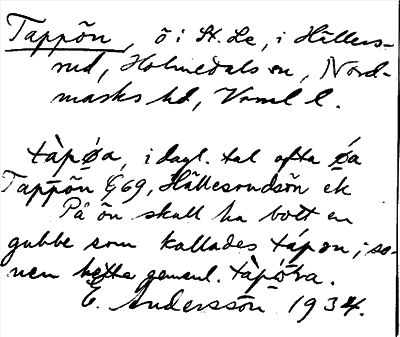 Tappön, ö i St. Le, i Hällers-
rud, Holmedals sn, Nord-
marks hd, Vrml l.
tàpǿa, i dagl. tal ofta ǿa
Tappön G69, Hällesrudsön ek
På ön skall ha bott en
gubbe som kallades tápən; so-
nen hette gemenl.
E. Andersson 1934.